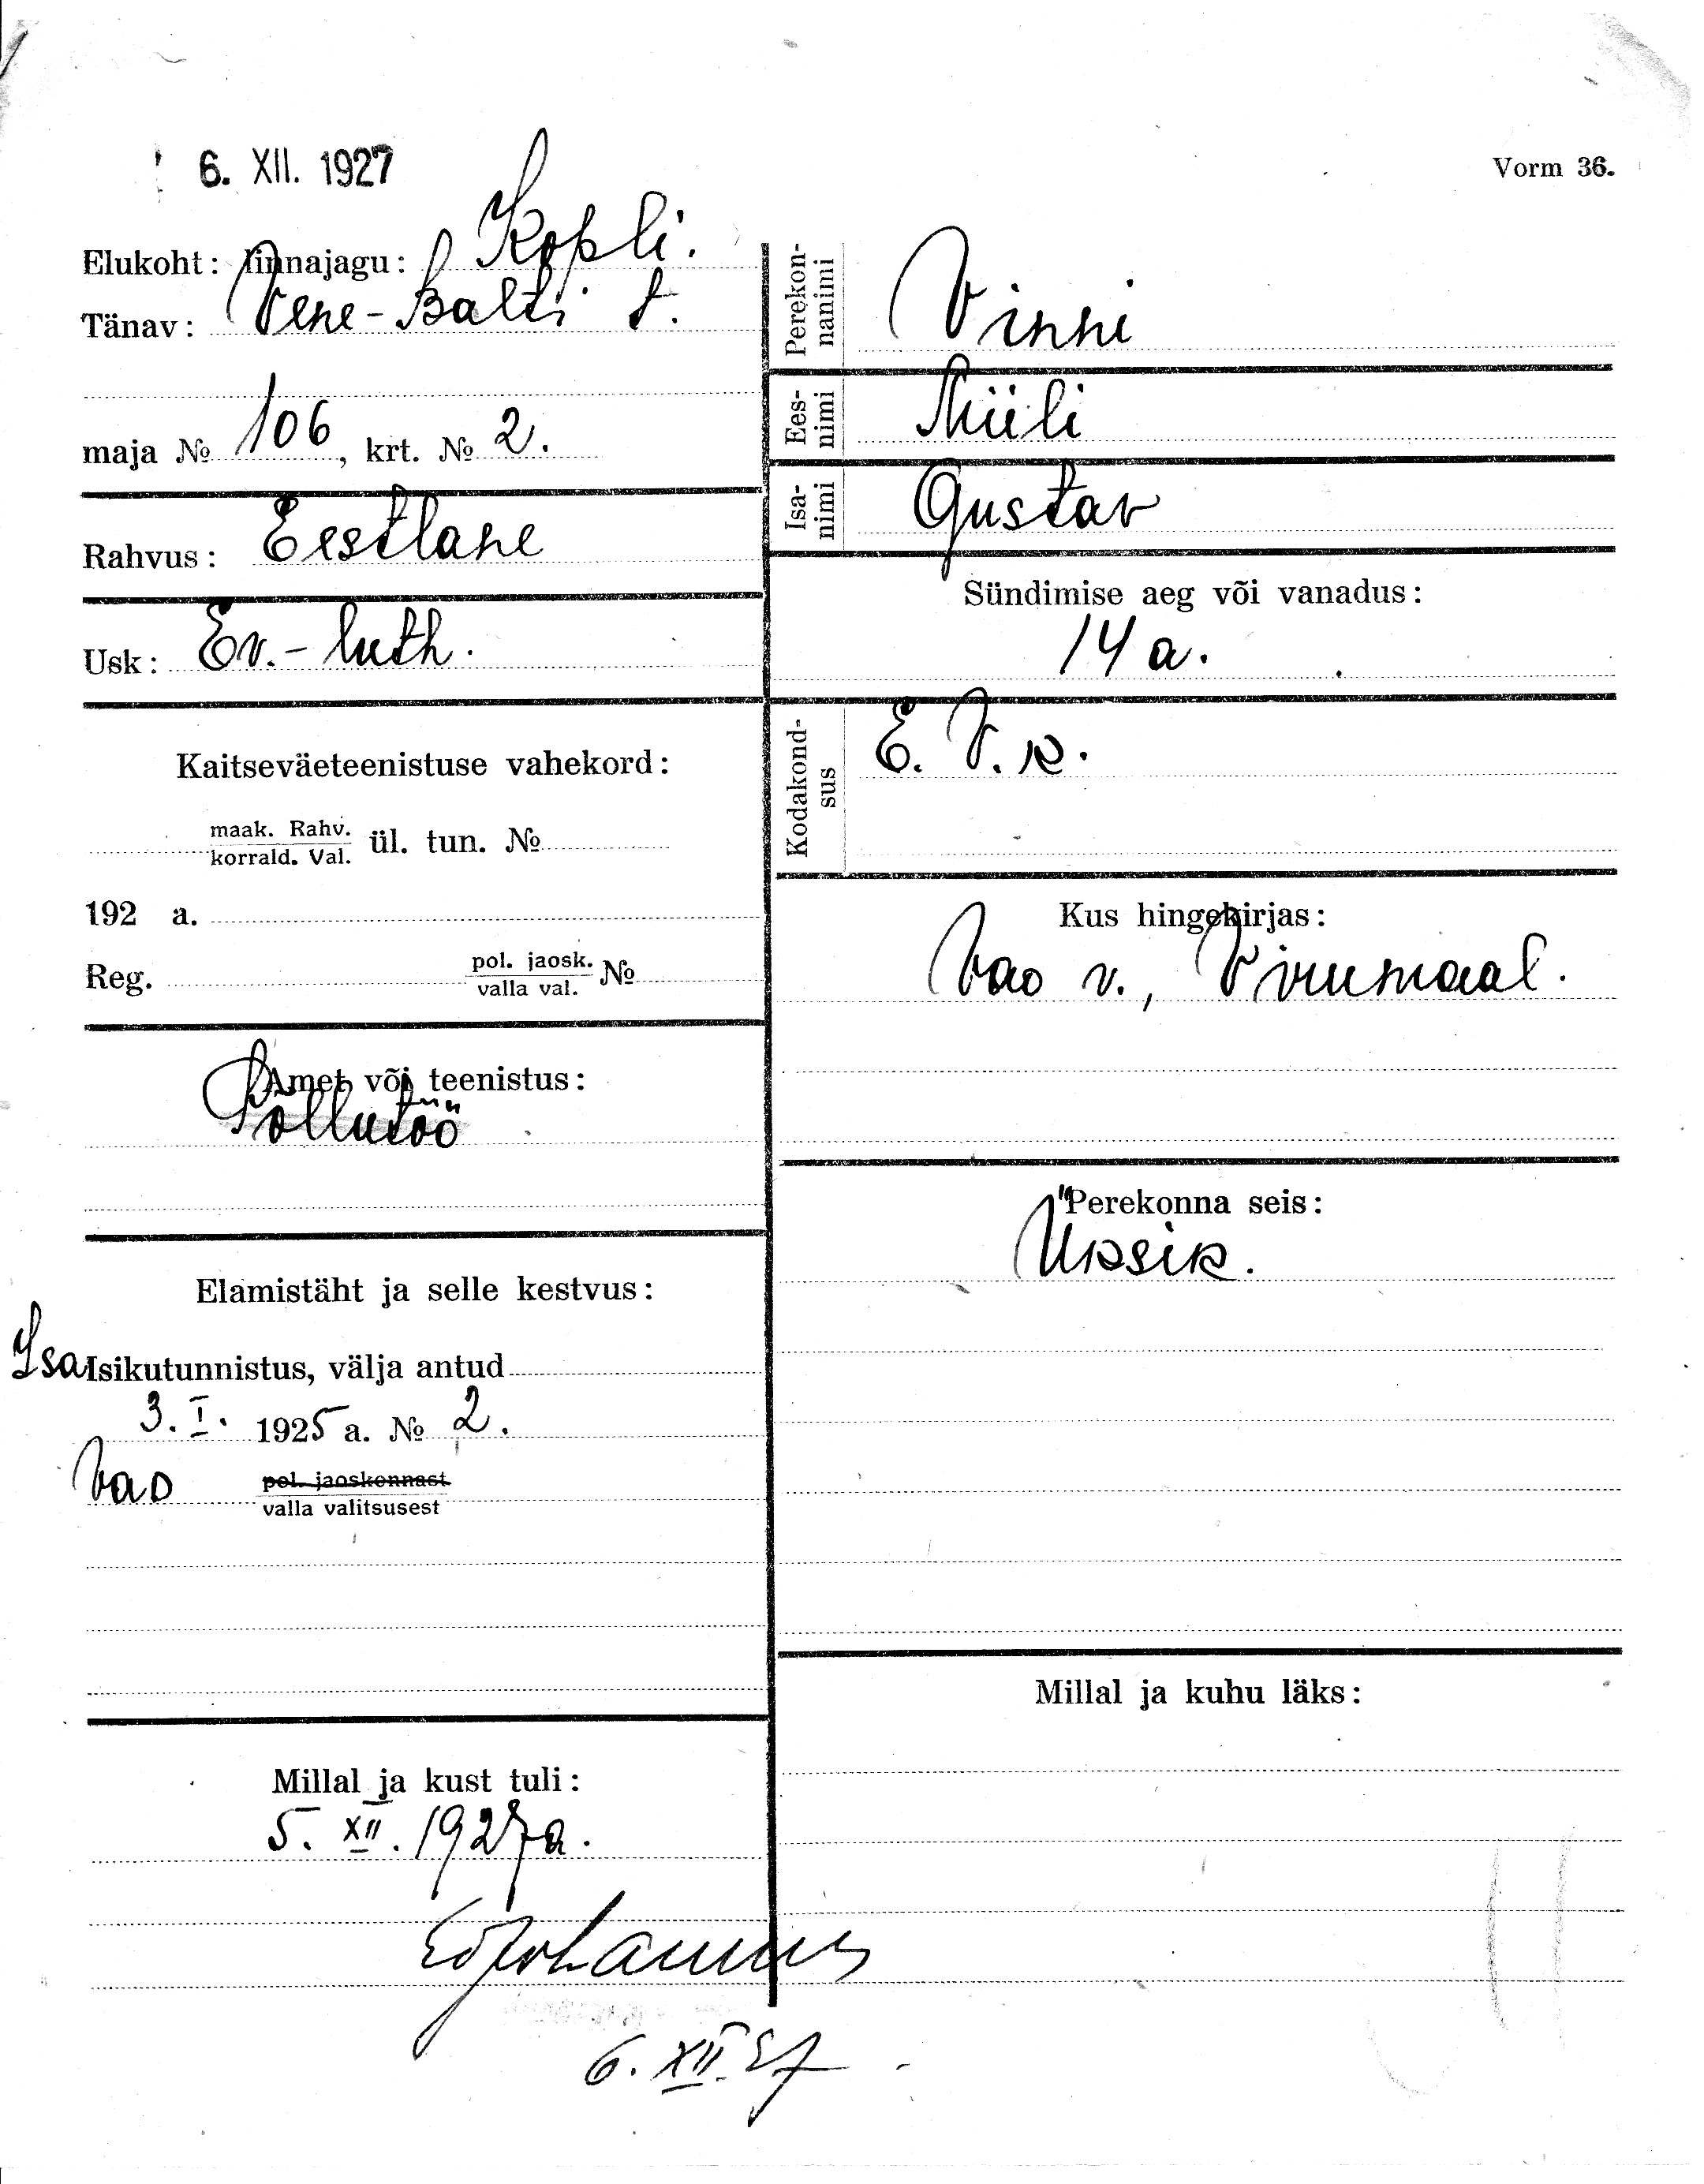 6. XII. 1927
Vorm 36.
Elukoht: linnajagu: Kopli.
Tänav: Vene-Balti t.
maja № 106, krt. № 2.
Rahvus: Eestlane
Usk: Ev.-luth.
Kaitseväeteenistuse vahekord:
maak. Rahv.
korrald. Val. ül. tun. №
192 a.
Reg. pol. jaosk. №
valla val.
Amet või teenistus:
Põllutöö
Elamistäht ja selle kestvus:
Isa Isikutunnistus, välja antud
3. I. 1925 a. № 2.
Vao pol. jaoskonnast
valla valitsusest
Millal ja kust tuli:
5. XII. 1927 a.
6. XII 27
Perekon-
nanimi
Vinni
Ees-
nimi
Isa-
nimi
Gustav
Sündimise aeg või vanadus:
14 a.
Kodakond-
sus
E. V. k.
Kus hingekirjas:
Vao v., Virumaal.
Perekonna seis:
Üksik.
Millal ja kuhu läks: